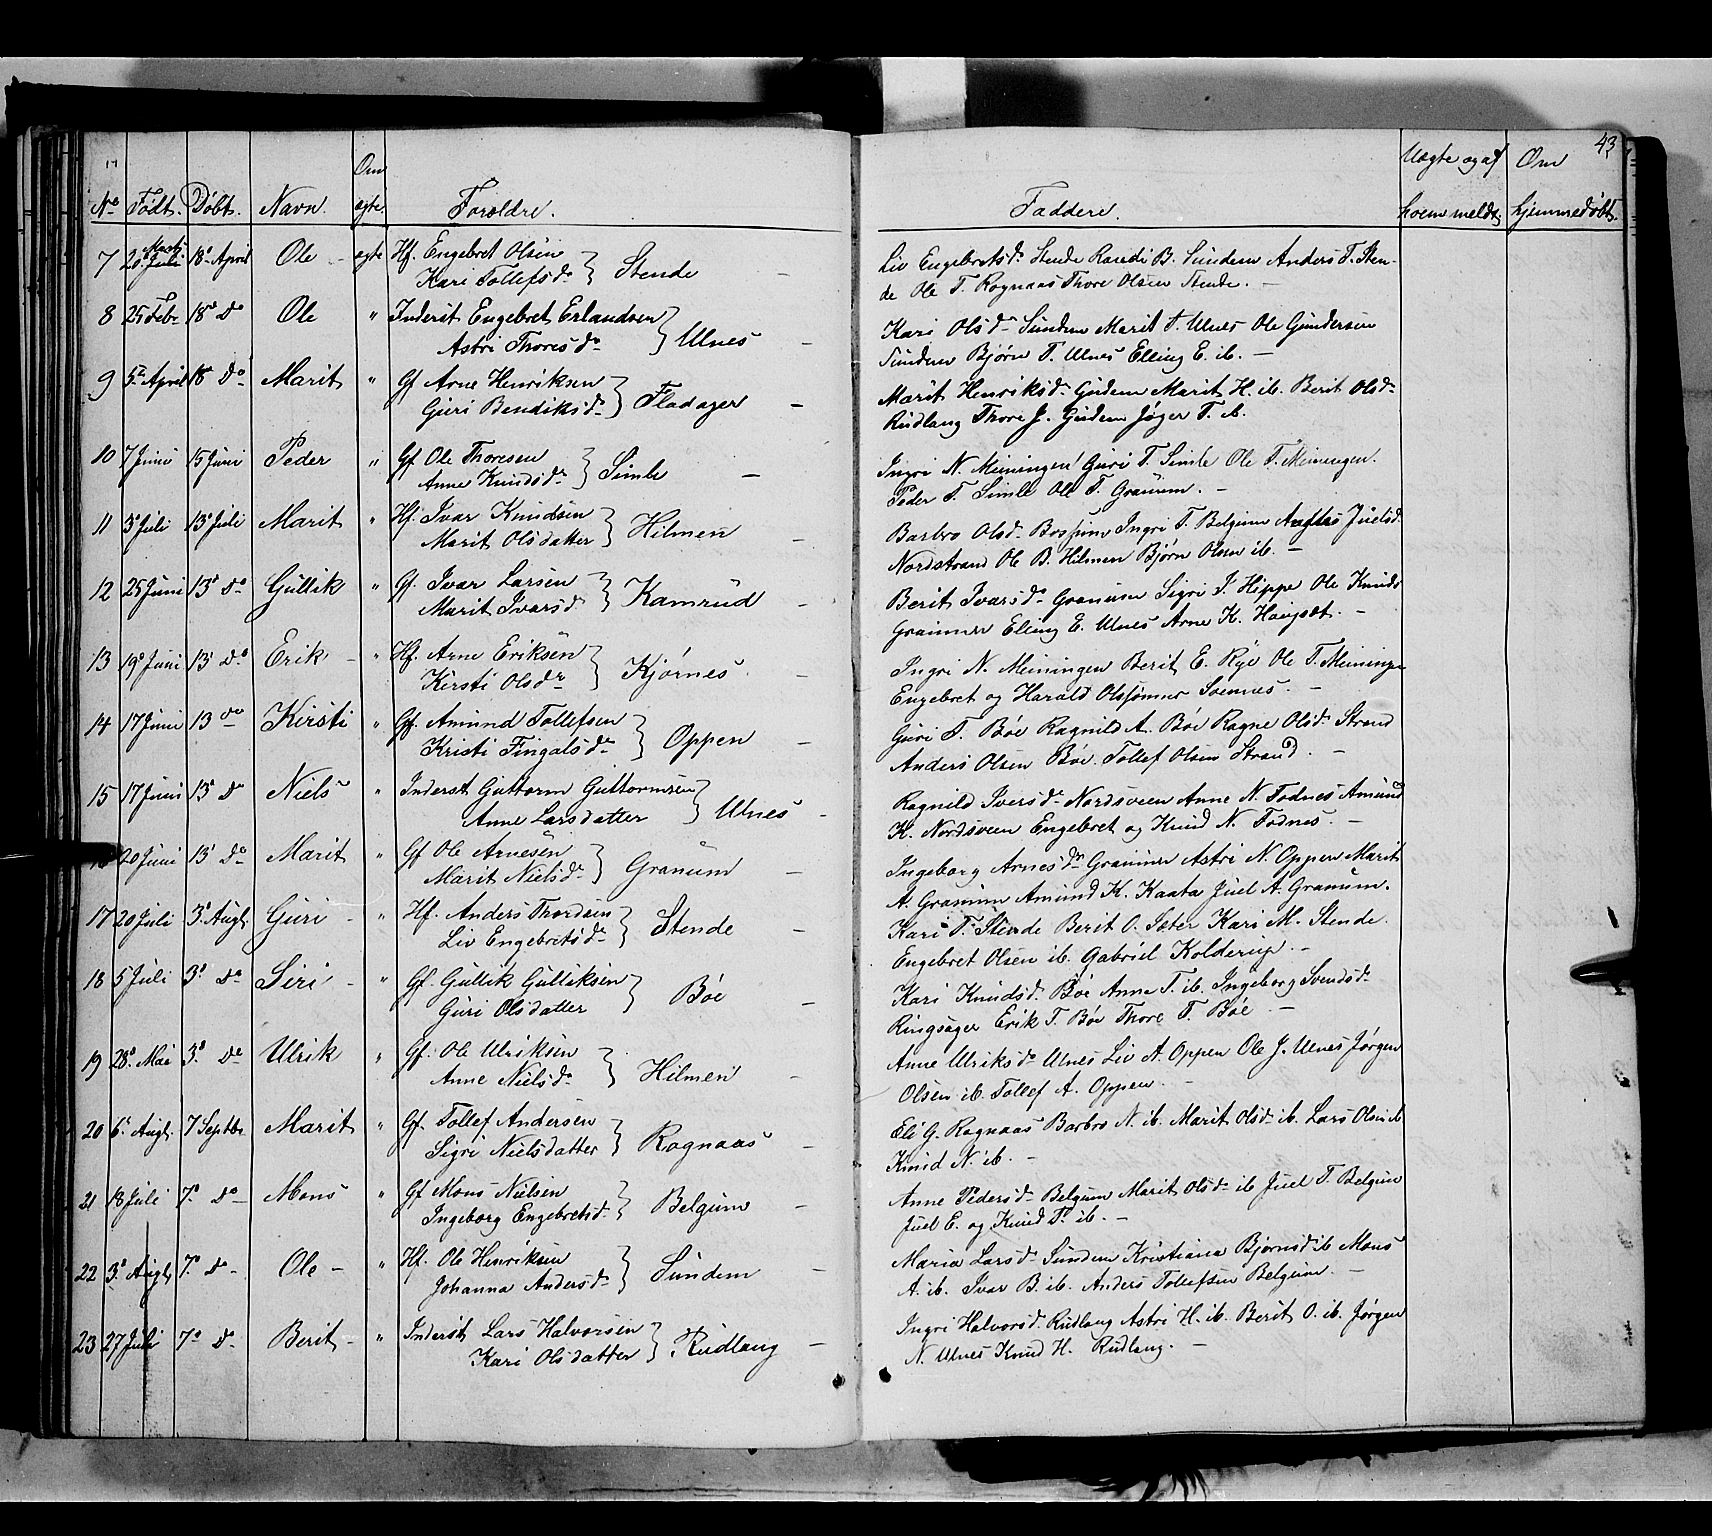 43
Om Uægte og af Om
No Födt. Döbt. Navn. egte. Forældre. Faddere. hvem meldt hjemmedöbt.
7 20 Marts Juli 18. April Ole - egte Hf. Engebret Olsen Liv Engebretsd. Stende Randi B. Sundem Anders T. Sten-
Kari Tollefsd. } Stende - de Ole T. Rognaas Thore Olsen Stende. -
8 25 Febr 18 Do Ole " Inderst Engebret Erlandsen Kari Olsd. Sundem Marit T. Ulnes Ole Gundersen
Astri Thoresd. } Ulnes - Sundem Björn T. Ulnes Elling E. ib. -
9 5. April 18 Do Marit " Gf Arne Henriksen Marit Henriksd. Gudem Marit H. ib. Berit Olsd.
Guri Bendiksd. } Fladager - Rudlang Thore J. Gudem Jöger T. ib.
10 7 Juni 15 Juni Peder " Gf Ole Thoresen Ingri N. Meiningen Guri T. Simle Ole T. Meiningen.
Anne Knudsd. } Simle - Peder T. Simle Ole T. Granum. -
11 3 Juli 13 Juli Marit " Hf. Ivar Knudsen Barbro Olsd. Ingri T. Belgum Juelsd.
Marit Olsdatter } Hilmen - Nordstrand Ole B. Hilmen Björn Olsen ib. -
12 25 Juni 13 Do Gullik " Gf. Ivar Larsen Berit Ivarsd. Granum Sigri I. Hippe Ole Knuds
Marit Ivarsd } Kamrud - Elling E. Ulnes Arne K. -
13 19 Juni 13 Do Erik - " Hf. Arne Eriksen Ingri N. Meiningen Berit E. Rye Ole T. Meininge
Kirsti Olsdr } Kjörnes - Engebret og Harald Olssönner Svennes. -
14 17 Juni 13 do Kirsti " Gf. Amund Tollefsen Guri T. Böe Ragnild A. Böe Ragne Olsd. Strand
Kristi Fingalsd. } Oppen - Anders Olsen Böe. Tollef Olsen Strand. -
15 17 Juni 13 Do Niels " Inderst Guttorm Guttormsen Ragnild Iversd. Nordsveen Anne N. Fodnes Amund
Anne Larsdatter } Ulnes - K. Nordsveen Engebret og Knud N. Fodnes. -
20 Juni 13 Do Marit " Gf Ole Arnesen Ingeborg Arnesd. Astri N. Oppen Marit
Marit Nielsd. } Granum - A. Granum Amund K. Kaata Juel A. Granum.
17 20 Juli 3. Augt. Guri - " Hf. Anders Thordsen Kari T. Stende Berit O. Sæter Kari M. Stende.
Liv Engebretsd. } Stende - Engebret Olsen ib. Gabriel Kolderup. -
18 5 Juli 3. Do Siri - " Gf. Gullik Gulliksen Kari Knudsd. Böe Anne T. ib. Ingeborg Svendsd.
Guri Olsdatter } Böe - Ringsager Erik T. Böe Thore T. Böe. -
19 28. Mai 3. Do Ulrik " Gf. Ole Ulriksen Anne Ulriksd. Ulnes Liv A. Oppen Ole J. Ulnes Jörgen
Anne Nielsd. } Hilmen - Olsen ib. Tollef A. Oppen. -
20 6. Augt. 7 Septbr Marit " Gf. Tollef Andersen Eli G. Rognaas Barbro N. ib. Marit Olsd. ib. Lars Olsen ib
Sigri Nielsdatter } Rognaas - Knud N. ib. -
21 18 Juli 7. Do Mons " Gf Mons Nielsen Anne Pedersd. Belgum Marit Olsd. ib Juel T. Belgum
Ingeborg Engebretsd. } Belgum - Juel E. og Knud T. ib. -
22 3. Augt. 7. Do Ole - " Hf. Ole Henriksen Maria Larsd. Sundem Kristiana Björnsd. ib Mons
Johanna Andersd. } Sundem - A. ib. Ivar B. ib. Anders Tollefsen Belgum. -
23 27 Juli 7. Do. Berit - " Inderst Lars Halvorsen Ingri Halvorsd. Rudlang Astri H. ib. Berit O. ib. Jörgen
Kari Olsdatter } Rudlang - N. Ulnes Knud H. Rudlang. -